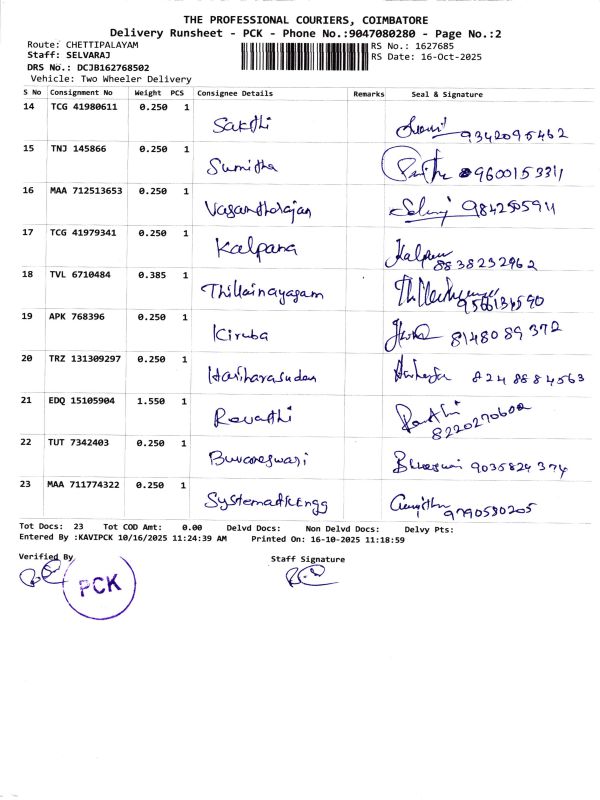 THE PROFESSIONAL COURIERS, COIMBATORE
Delivery Runsheet - PCK - Phone No.:9047080280 - Page No.:2
Route: CHETTIPALAYAM RS No.: 1627685
Staff: SELVARAJ RS Date: 16-Oct-2025
DRS No.: DCJB162768502
Vehicle: Two Wheeler Delivery
S No Consignment No Weight PCS Consignee Details Remarks Seal & Signature
14 TCG 41980611 0.250 1 Sakthi 9342095462
15 TNJ 145866 0.250 1 Sumitha 9600153311
16 MAA 712513653 0.250 1 Vasantharajan 9842505911
17 TCG 41979341 0.250 1 Kalpana Kalpana 8838232962
18 TVL 6710484 0.385 1 Thillainayagam
19 APK 768396 0.250 1 Kiruba 8148089372
20 TRZ 131309297 0.250 1 Hariharasudan 8248884563
21 EDQ 15105904 1.550 1 Revathi 8220270600
22 TUT 7342403 0.250 1 Buvaneswari 9035824374
23 MAA 711774322 0.250 1 Systematic Engg 9790590205
Tot Docs: 23 Tot COD Amt: 0.00 Delvd Docs: Non Delvd Docs: Delvy Pts:
Entered By :KAVIPCK 10/16/2025 11:24:39 AM Printed On: 16-10-2025 11:18:59
Verified By Staff Signature
PCK